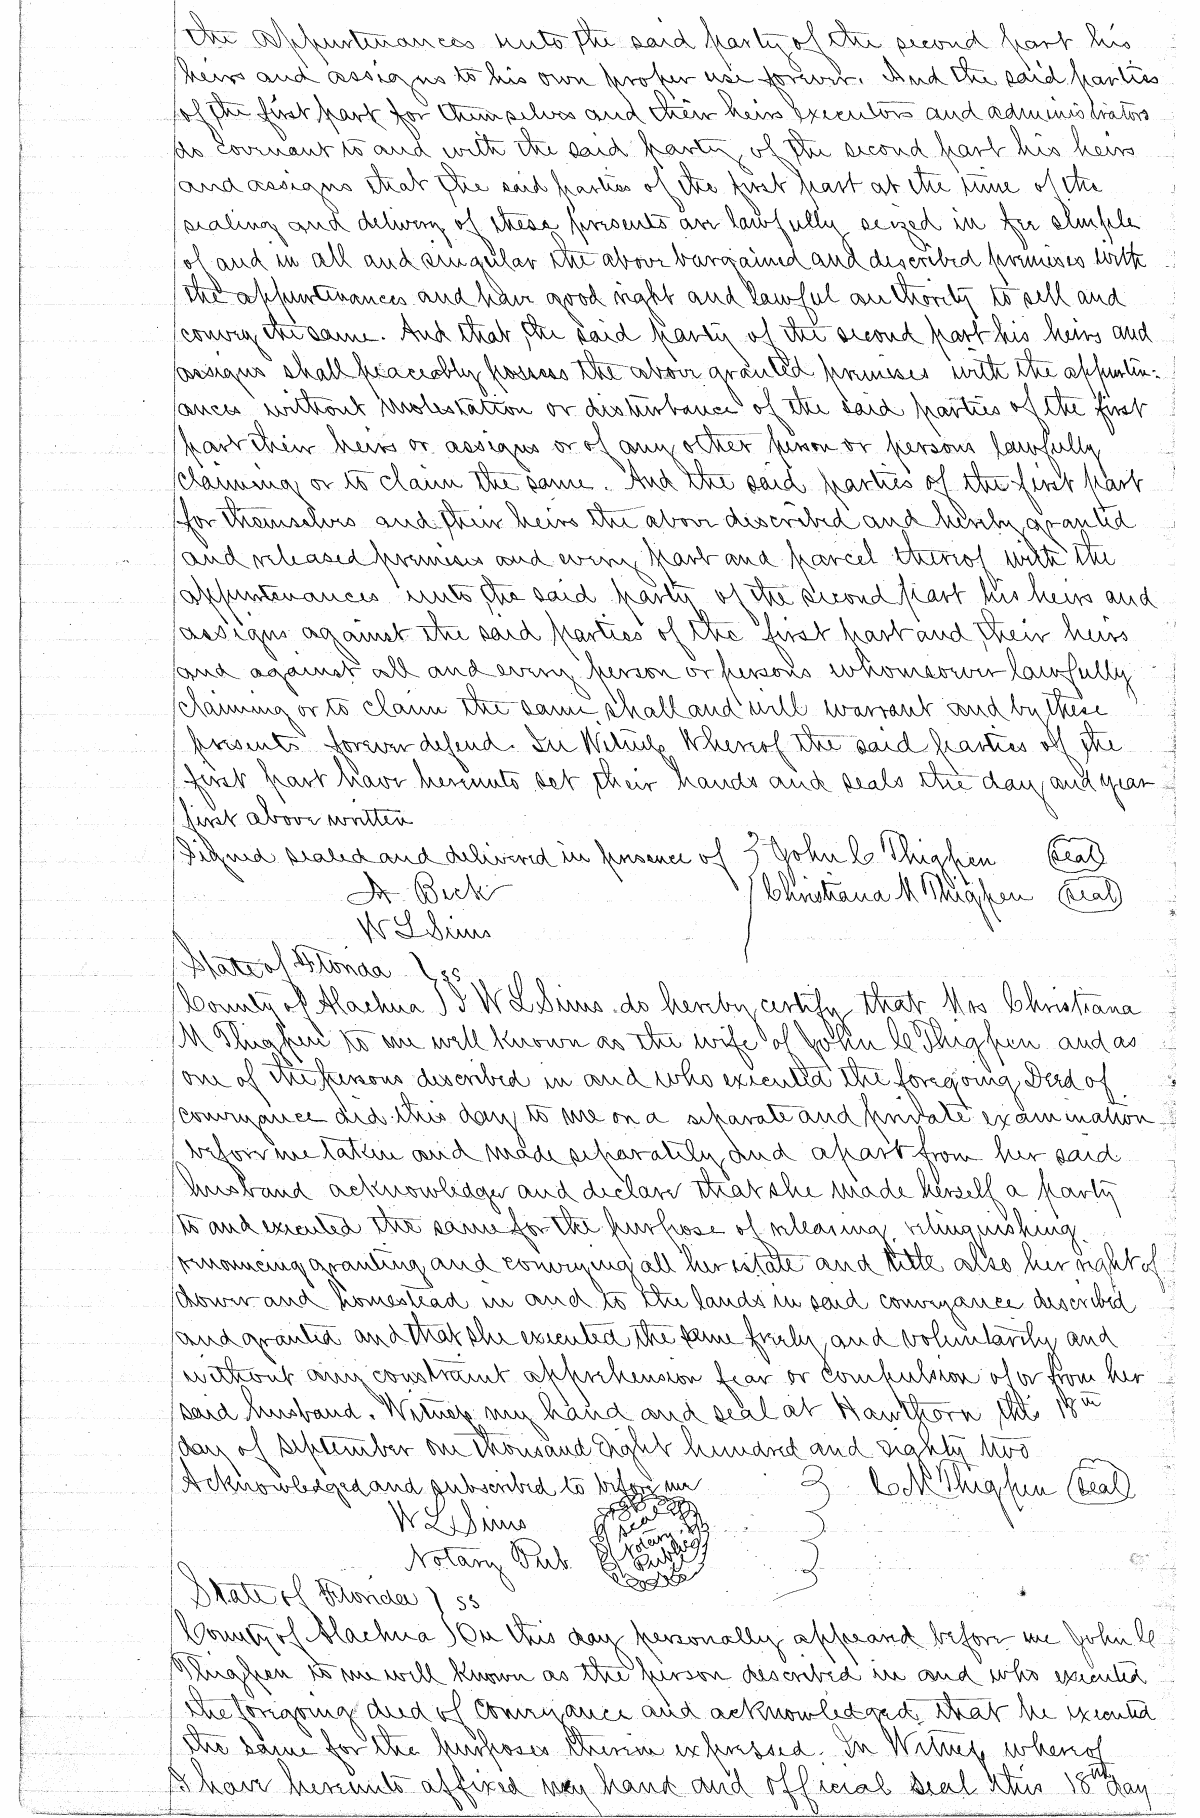 the appurtenances unto the said party of the second part his
heirs and assigns to his own proper use forever. And the said parties
of the first part for themselves and their heirs executors and administrators
do covenant to and with the said party of the second part his heirs
and assigns that the said parties of the first part at the time of the
sealing and delivery of these presents are lawfully seized in fee simple
of and in all and singular the above bargained and described premises with
the appurtenances and have good right and lawful authority to sell and
convey the same. And that the said party of the second part his heirs and
assigns shall peaceably possess the above granted premises with the appurten-
ances without molestation or disturbance of the said parties of the first
part their heirs or assigns or of any other person or persons lawfully
claiming or to claim the same. And the said parties of the first part
for themselves and their heirs the above described and hereby granted
and released premises and every part and parcel thereof with the
appurtenances unto the said party of the second part his heirs and
assigns against the said parties of the first part and their heirs
and against all and every person or persons whomsoever lawfully
claiming or to claim the same shall and will warrant and by these
presents forever defend. In Witness Whereof the said parties of the
first part have hereunto set their hands and seals the day and year
first above written
Signed sealed and delivered in presence of } John C Thigpen (seal)
A Beck Christiana M Thigpen (seal)
W L Sims
State of Florida } ss
County of Alachua } I W L Sims do hereby certify that Mrs Christiana
M Thigpen to me well known as the wife of John C Thigpen and as
one of the persons described in and who executed the foregoing Deed of
conveyance did this day to me on a separate and private examination
before me taken and made separately and apart from her said
husband acknowledge and declare that she made herself a party
to and executed the same for the purpose of releasing, relinquishing
renouncing granting and conveying all her estate and title also her right of
dower and homestead in and to the lands in said conveyance described
and granted and that she executed the same freely and voluntarily and
without any constraint apprehension fear or compulsion of or from her
said husband. Witness my hand and seal at Hawthorn this 18th
day of September one thousand Eight hundred and eighty two
Acknowledged and subscribed to before me } C M Thigpen (seal)
W L Sims
seal
Notary
Public
Notary Pub.
State of Florida } ss
County of Alachua } On this day personally appeared before me John C
Thigpen to me well known as the person described in and who executed
the foregoing deed of conveyance and acknowledged that he executed
the same for the purposes therein expressed. In Witness whereof
I have hereunto affixed my hand and official seal this 18th day